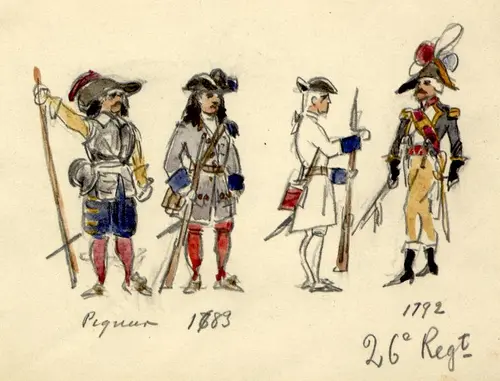 Piqueur 1683
1792
26e Regt